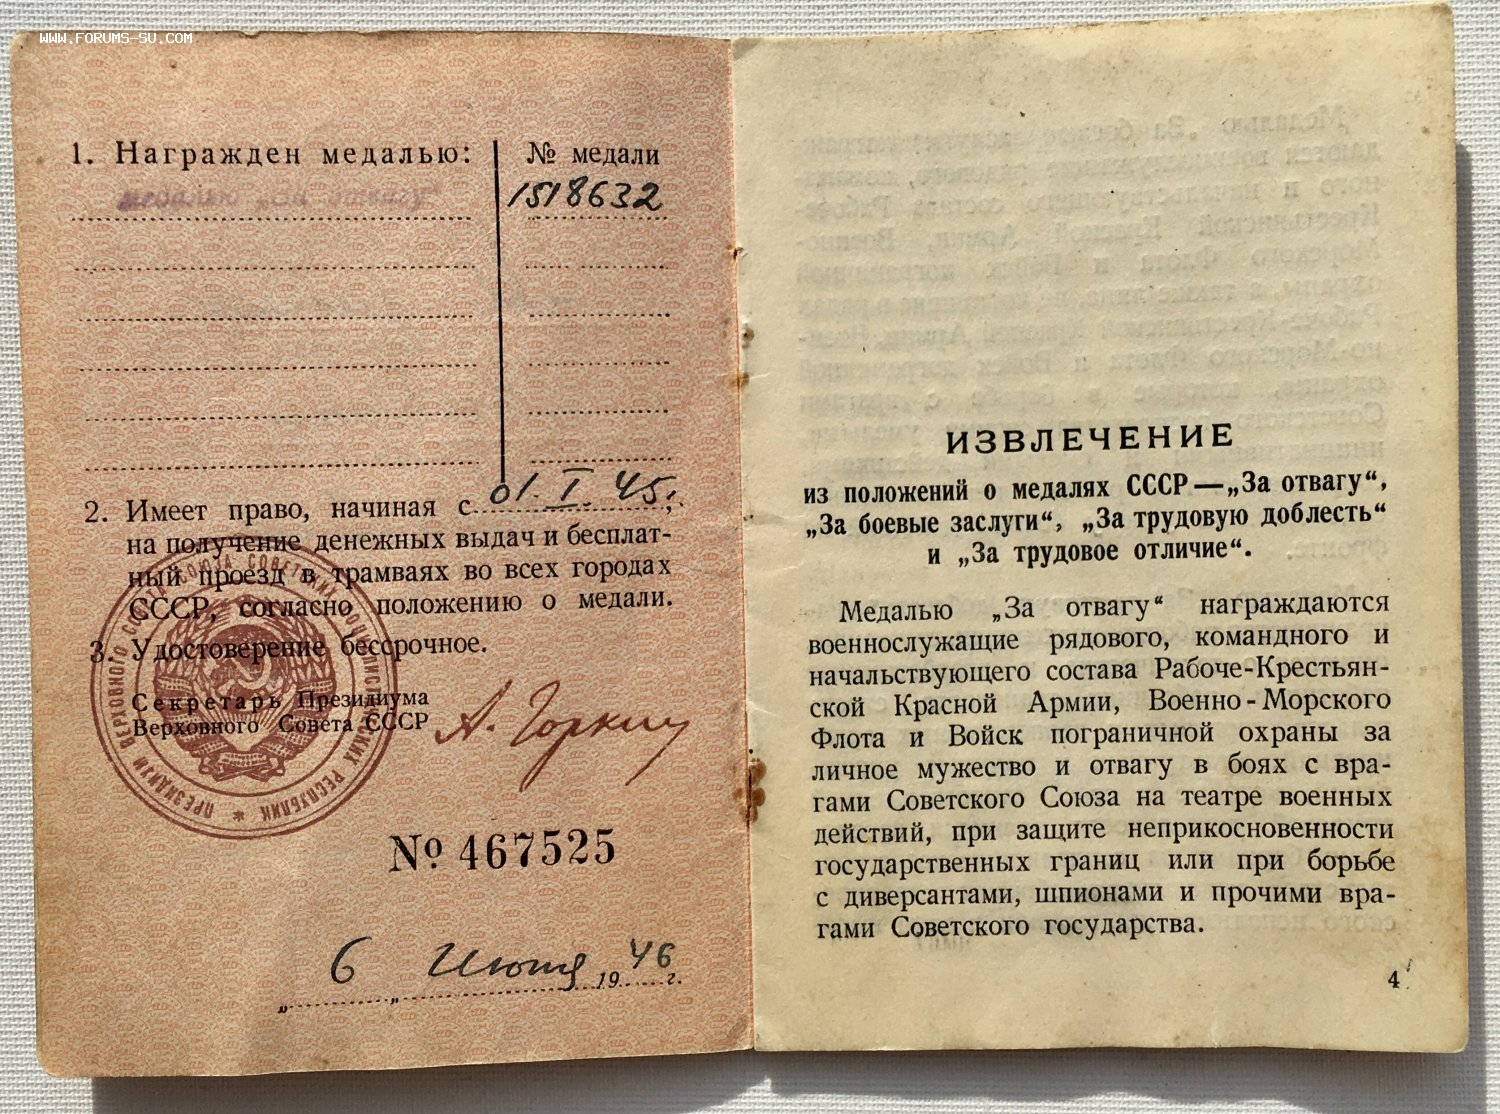 www.forums-su.com
1. Награжден медалью:
№ медали
медалью „За отвагу“
1518632
2. Имеет право, начиная с 01.I.45.,
на получение денежных выдач и бесплат-
ный проезд в трамваях во всех городах
СССР, согласно положению о медали.
3. Удостоверение бессрочное.
Секретарь Президиума
Верховного Совета СССР
А. Горкин
ПРЕЗИДИУМ ВЕРХОВНОГО СОВЕТА СОЮЗА СОВЕТСКИХ СОЦИАЛИСТИЧЕСКИХ РЕСПУБЛИК *
№ 467525
„6“ Июня 1946 г.
ИЗВЛЕЧЕНИЕ
из положений о медалях СССР—„За отвагу“,
„За боевые заслуги“, „За трудовую доблесть“
и „За трудовое отличие“.
Медалью „За отвагу“ награждаются
военнослужащие рядового, командного и
начальствующего состава Рабоче-Крестьян-
ской Красной Армии, Военно-Морского
Флота и Войск пограничной охраны за
личное мужество и отвагу в боях с вра-
гами Советского Союза на театре военных
действий, при защите неприкосновенности
государственных границ или при борьбе
с диверсантами, шпионами и прочими вра-
гами Советского государства.
4